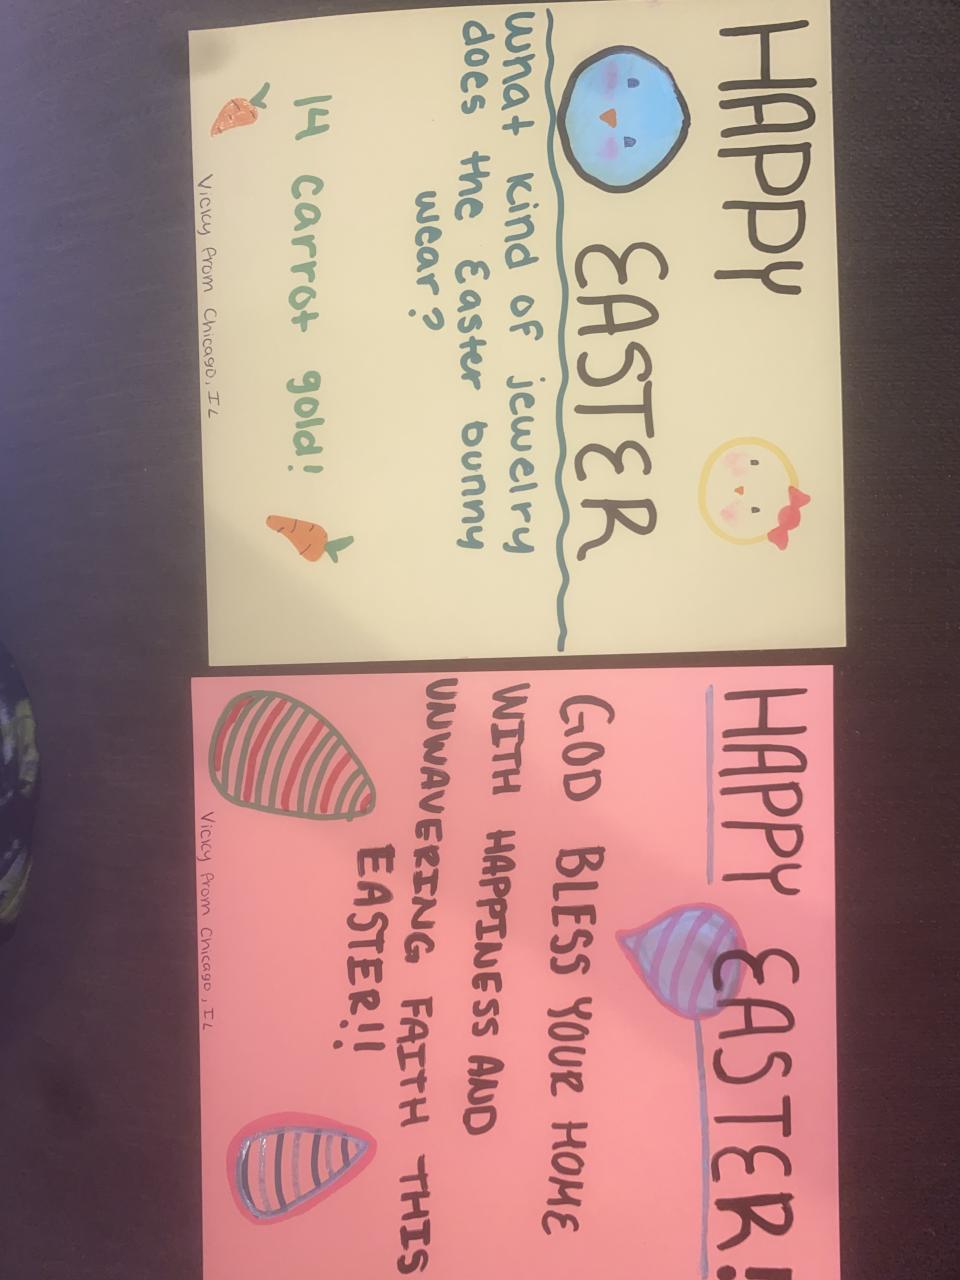 HAPPY
EASTER
What kind of jewelry
does the Easter bunny
wear?
14 carrot gold!
Vicky From Chicago, IL
HAPPY EASTER!
GOD BLESS YOUR HOME
WITH HAPPINESS AND
UNWAVERING FAITH THIS
EASTER!!
Vicky From Chicago, IL